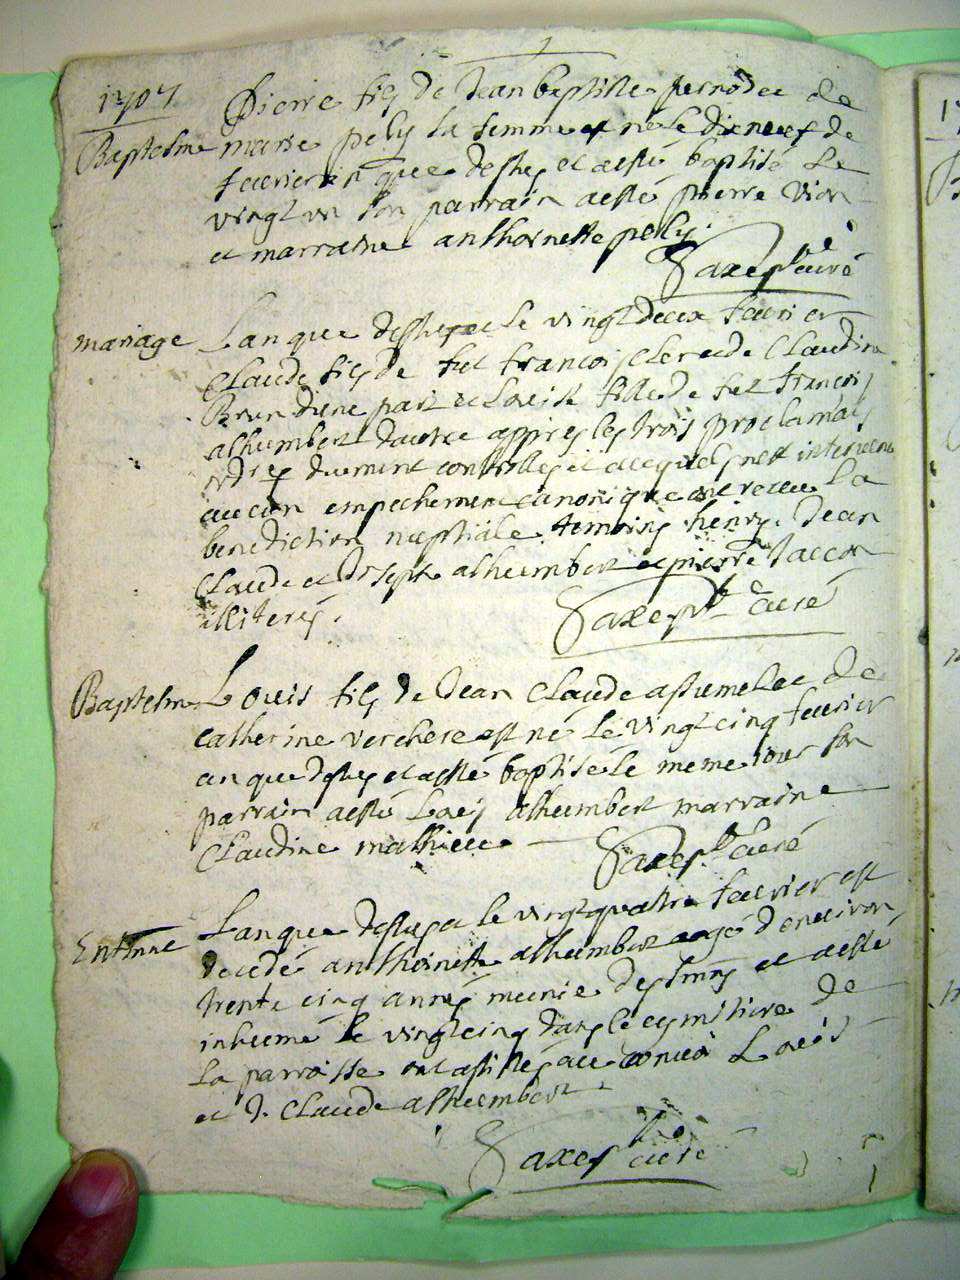 1707
Baptesme
Pierre fils de Jean baptiste pernodet et de
marie pely sa femme est né le dixneuf de
feuvrier an que dessus et a esté baptisé le
vingt un son parrain a esté pierre vion
et marraine anthoinette pely.
Saxe ptre curé
mariage
L'an que dessus et le vingt deux feuvrier
Claude fils de fut francois clerc et de Claudine
Brun d'une part et Louise fille de fut francois
alhumbert d'autre appres les trois proclamats
duement controlles et ausquels n'est intervenu
aucun empechement canonique ont receu la
benediction nuptiale temoins henry, Jean
Claude et Joseph alhumbert et pierre Jaccon
illiterés.
Saxe ptre curé
Baptesme
Louis fils de Jean Claude et de
catherine verchere est né le vingt cinq feuvrier
an que dessus et a esté baptisé le meme jour son
parrain a esté Louis alhumbert marraine
Claudine mathieu.
Saxe ptre curé
Enterre
L'an que dessus et le vingt quatre feuvrier est
decedé anthoinette alhumbert aagé d'environ
trente cinq annés munie des smts et a esté
inhumé le vingt cinq dans le cymitiere de
la parroisse ont assistés au convoi Louis
et J. Claude alhumbert.
Saxe ptre curé